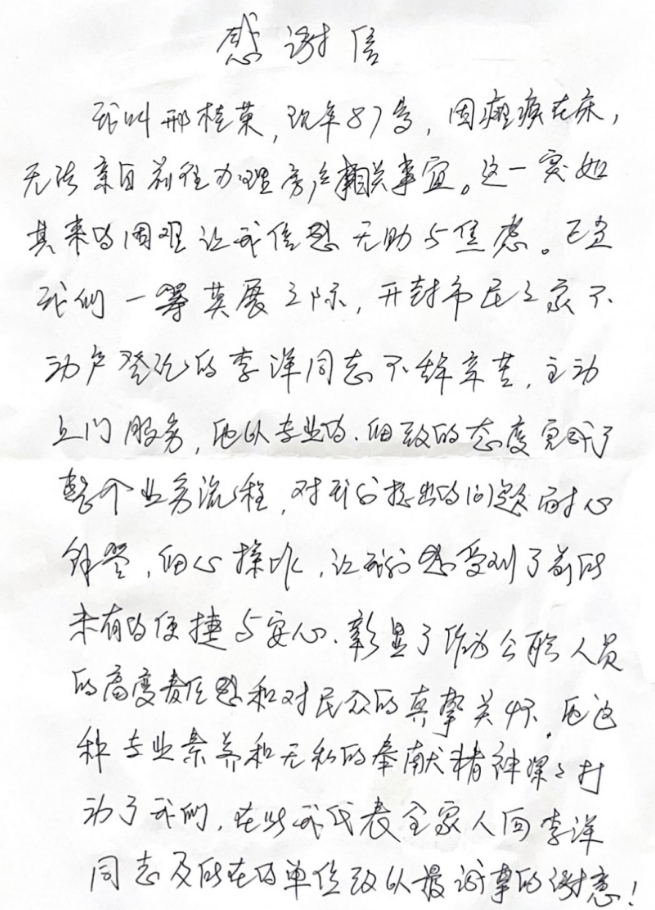 感谢信
我叫邢桂荣，现年87岁，因瘫痪在床，
无法亲自前往办理房产相关事宜。这一突如
其来的困难让我倍感无助与焦虑。正当
我们一筹莫展之际，开封市民之家不
动产登记的李洋同志不辞辛苦，主动
上门服务，他以专业的、细致的态度完成了
整个业务流程，对我们提出的问题耐心
解答，细心操作，让我们感受到了前所
未有的便捷与安心。彰显了作为公职人员
的高度责任感和对民众的真挚关怀，他这
种专业素养和无私的奉献精神深深打
动了我们，在此我代表全家人向李洋
同志及所在的单位致以最诚挚的谢意！